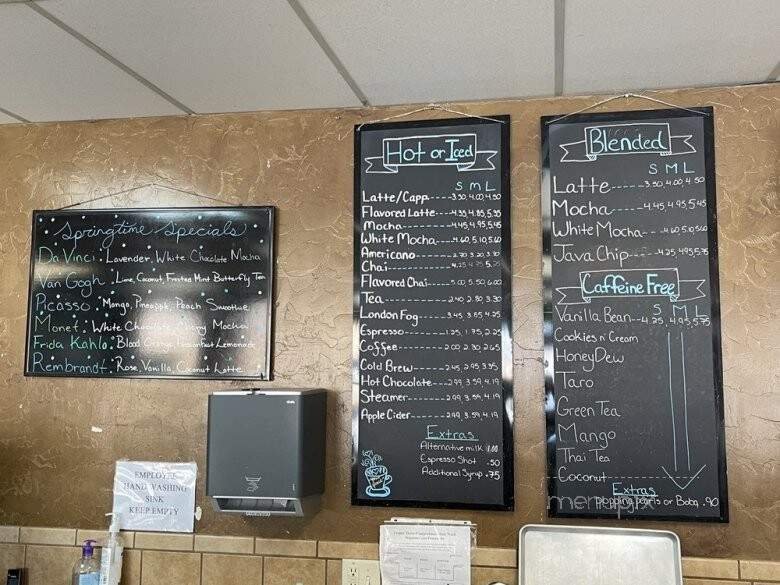 Springtime Specials
Da Vinci: Lavender, White Chocolate Mocha
Van Gogh: Lime, Coconut, Frosted Mint Butterfly Tea
Picasso: Mango, Pineapple, Peach Smoothie
Monet: White Chocolate Cherry Mocha
Frida Kahlo: Blood Orange Passionfruit Lemonade
Rembrandt: Rose, Vanilla, Coconut Latte
Hot or Iced
S M L
Latte/Capp 3.50 4.00 4.50
Flavored Latte 4.35 4.85 5.35
Mocha 4.45 4.95 5.45
White Mocha 4.60 5.10 5.60
Americano 2.70 3.20 3.70
Chai 4.25 4.75 5.25
Flavored Chai 5.00 5.50 6.00
Tea 2.40 2.80 3.30
London Fog 3.45 3.85 4.25
Espresso 1.25 1.75 2.25
Coffee 2.00 2.30 2.65
Cold Brew 2.45 2.95 3.95
Hot Chocolate 2.99 3.59 4.19
Steamer 2.99 3.59 4.19
Apple Cider 2.99 3.59 4.19
Extras
Alternative milk 1.00
Espresso Shot .50
Additional Syrup .75
Blended
S M L
Latte 3.50, 4.00, 4.50
Mocha 4.45, 4.95, 5.45
White Mocha 4.60 5.10 5.60
Java Chip 4.25 4.95 5.75
Caffeine Free
S M L
Vanilla Bean 4.25, 4.95, 5.75
Cookies n' Cream
HoneyDew
Taro
Green Tea
Mango
Thai Tea
Coconut
Extras
Popping pearls or Boba .90
EMPLOYEE
HAND WASHING
SINK
KEEP EMPTY
menupix